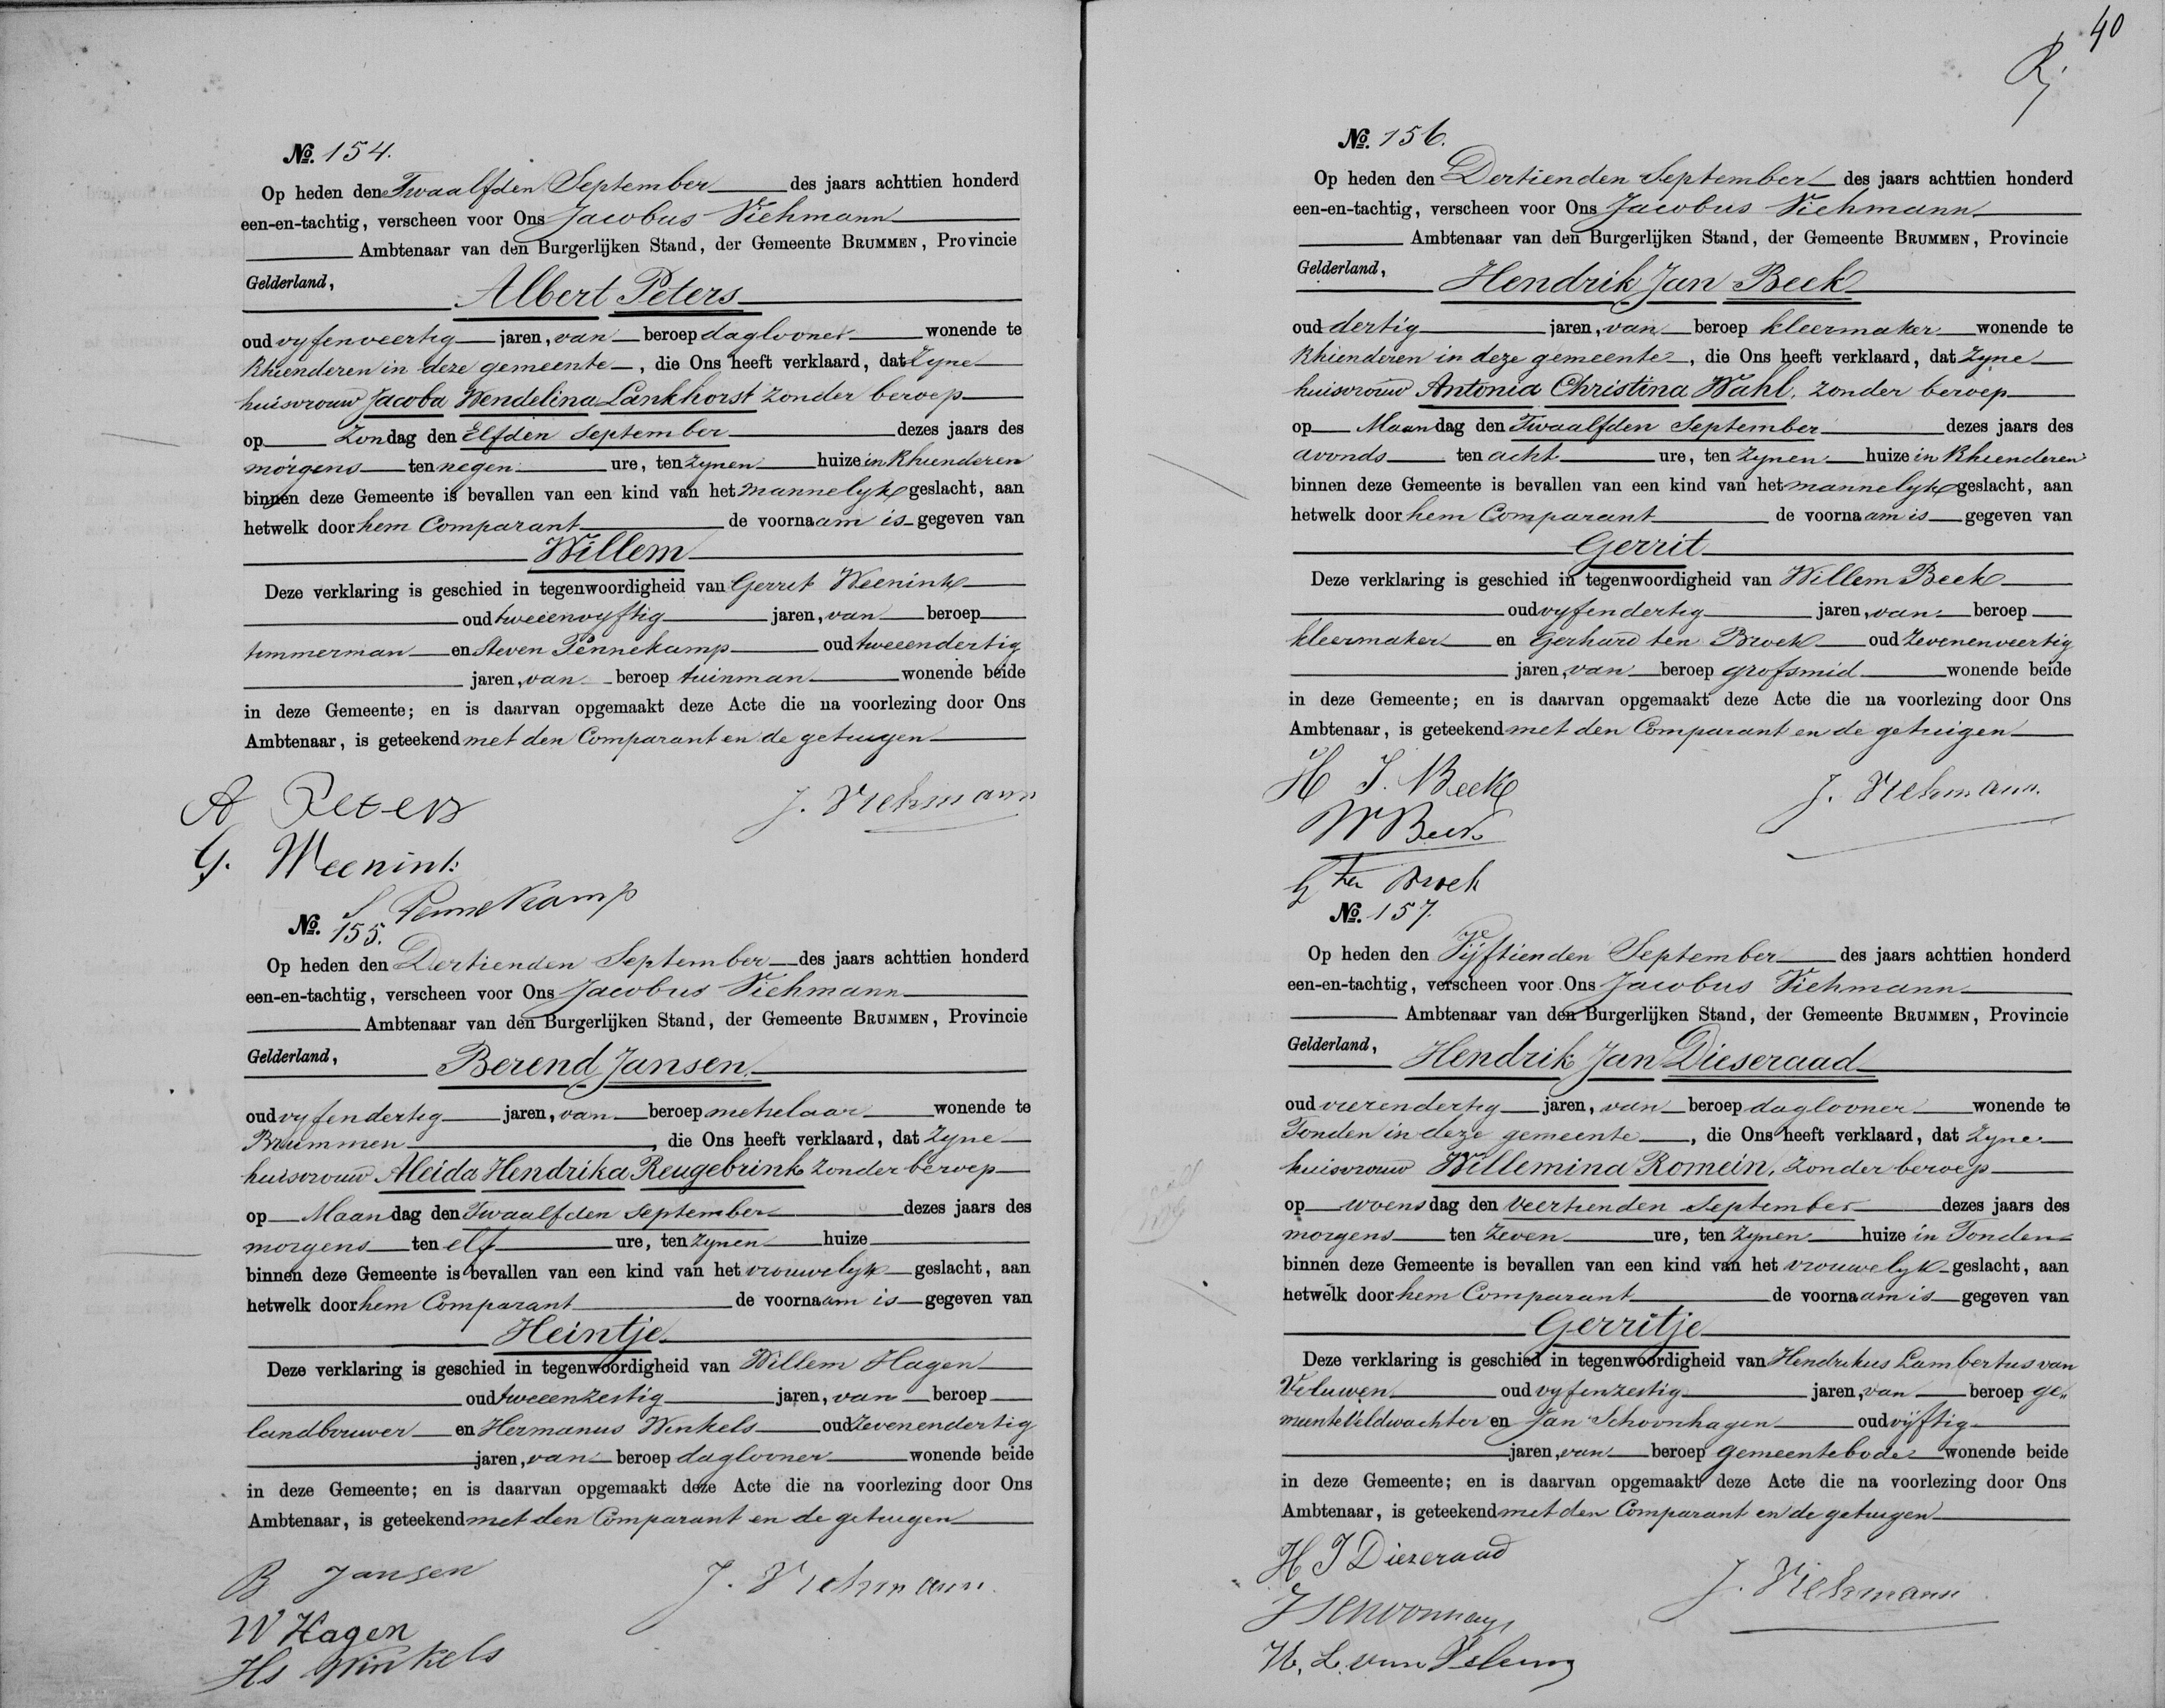 No. 154.
Op heden den Twaalfden September des jaars achttien honderd
een-en-tachtig, verscheen voor Ons Jacobus Viehmann
Ambtenaar van den Burgerlijken Stand, der Gemeente BRUMMEN, Provincie
Gelderland,
Albert Peters
oud vyfenveertig jaren, van beroep daglooner wonende te
Rhienderen in deze gemeente, die Ons heeft verklaard, dat Zyne
huisvrouw Jacoba Wendelina Lankhorst zonder beroep
op Zondag den Elfden September dezes jaars des
morgens ten negen ure, ten Zynen huize in Rhienderen
binnen deze Gemeente is bevallen van een kind van het mannelyk geslacht, aan
hetwelk door hem Comparant de voornaam is gegeven van
Willem
Deze verklaring is geschied in tegenwoordigheid van Gerrit Weenink
oud tweeenvyftig jaren, van beroep
timmerman en Steven Pennekamp oud tweeendertig
jaren, van beroep tuinman wonende beide
in deze Gemeente; en is daarvan opgemaakt deze Acte die na voorlezing door Ons
Ambtenaar, is geteekend met den Comparant en de getuigen
A Peters
J. Viehmann
G. Weenink
S Pennekamp
No. 155.
Op heden den Dertienden September des jaars achttien honderd
een-en-tachtig, verscheen voor Ons Jacobus Viehmann
Ambtenaar van den Burgerlijken Stand, der Gemeente BRUMMEN, Provincie
Gelderland,
Berend Jansen
oud vyfendertig jaren, van beroep metselaar wonende te
Brummen, die Ons heeft verklaard, dat Zyne
huisvrouw Aleida Hendrika Reugebrink zonder beroep
op Maandag den Twaalfden September dezes jaars des
morgens ten elf ure, ten Zynen huize
binnen deze Gemeente is bevallen van een kind van het vrouwelyk geslacht, aan
hetwelk door hem Comparant de voornaam is gegeven van
Heintje
Deze verklaring is geschied in tegenwoordigheid van Willem Hagen
oud tweeenzestig jaren, van beroep
landbouwer en Hermanus Winkels oud Zevenendertig
jaren, van beroep daglooner wonende beide
in deze Gemeente; en is daarvan opgemaakt deze Acte die na voorlezing door Ons
Ambtenaar, is geteekend met den Comparant en de getuigen
B Jansen
J. Viehmann
W Hagen
Hs Winkels
40
No. 156.
Op heden den Dertienden September des jaars achttien honderd
een-en-tachtig, verscheen voor Ons Jacobus Viehmann
Ambtenaar van den Burgerlijken Stand, der Gemeente BRUMMEN, Provincie
Gelderland,
Hendrik Jan Beek
oud dertig jaren, van beroep kleermaker wonende te
Rhienderen in deze gemeente, die Ons heeft verklaard, dat Zyne
huisvrouw Antonia Christina Wahl, zonder beroep
op Maandag den Twaalfden September dezes jaars des
avonds ten acht ure, ten Zynen huize in Rhienderen
binnen deze Gemeente is bevallen van een kind van het mannelyk geslacht, aan
hetwelk door hem Comparant de voornaam is gegeven van
Gerrit
Deze verklaring is geschied in tegenwoordigheid van Willem Beek
oud vyfendertig jaren, van beroep
kleermaker en Gerhard ten Broek oud Zevenenveertig
jaren, van beroep grofsmid wonende beide
in deze Gemeente; en is daarvan opgemaakt deze Acte die na voorlezing door Ons
Ambtenaar, is geteekend met den Comparant en de getuigen
H J. Beek
J. Viehmann.
W Beek
G ten Broek
No. 157.
Op heden den Vijftienden September des jaars achttien honderd
een-en-tachtig, verscheen voor Ons Jacobus Viehmann
Ambtenaar van den Burgerlijken Stand, der Gemeente BRUMMEN, Provincie
Gelderland,
Hendrik Jan Dieseraad
oud vierendertig jaren, van beroep daglooner wonende te
Tonden in deze gemeente, die Ons heeft verklaard, dat Zyne
huisvrouw Willemina Romein, zonder beroep
op woensdag den veertienden September dezes jaars des
morgens ten Zeven ure, ten Zynen huize in Tonden
binnen deze Gemeente is bevallen van een kind van het vrouwelyk geslacht, aan
hetwelk door hem Comparant de voornaam is gegeven van
Gerritje
Deze verklaring is geschied in tegenwoordigheid van Hendrikus Lambertus van
Veluwen oud vyfenzestig jaren, van beroep ge„
meenteveldwachter en Jan Schoonhagen oud vijftig
jaren, van beroep gemeentebode wonende beide
in deze Gemeente; en is daarvan opgemaakt deze Acte die na voorlezing door Ons
Ambtenaar, is geteekend met den Comparant en de getuigen
H J Diezeraad
J. Viehmann
H. L. van